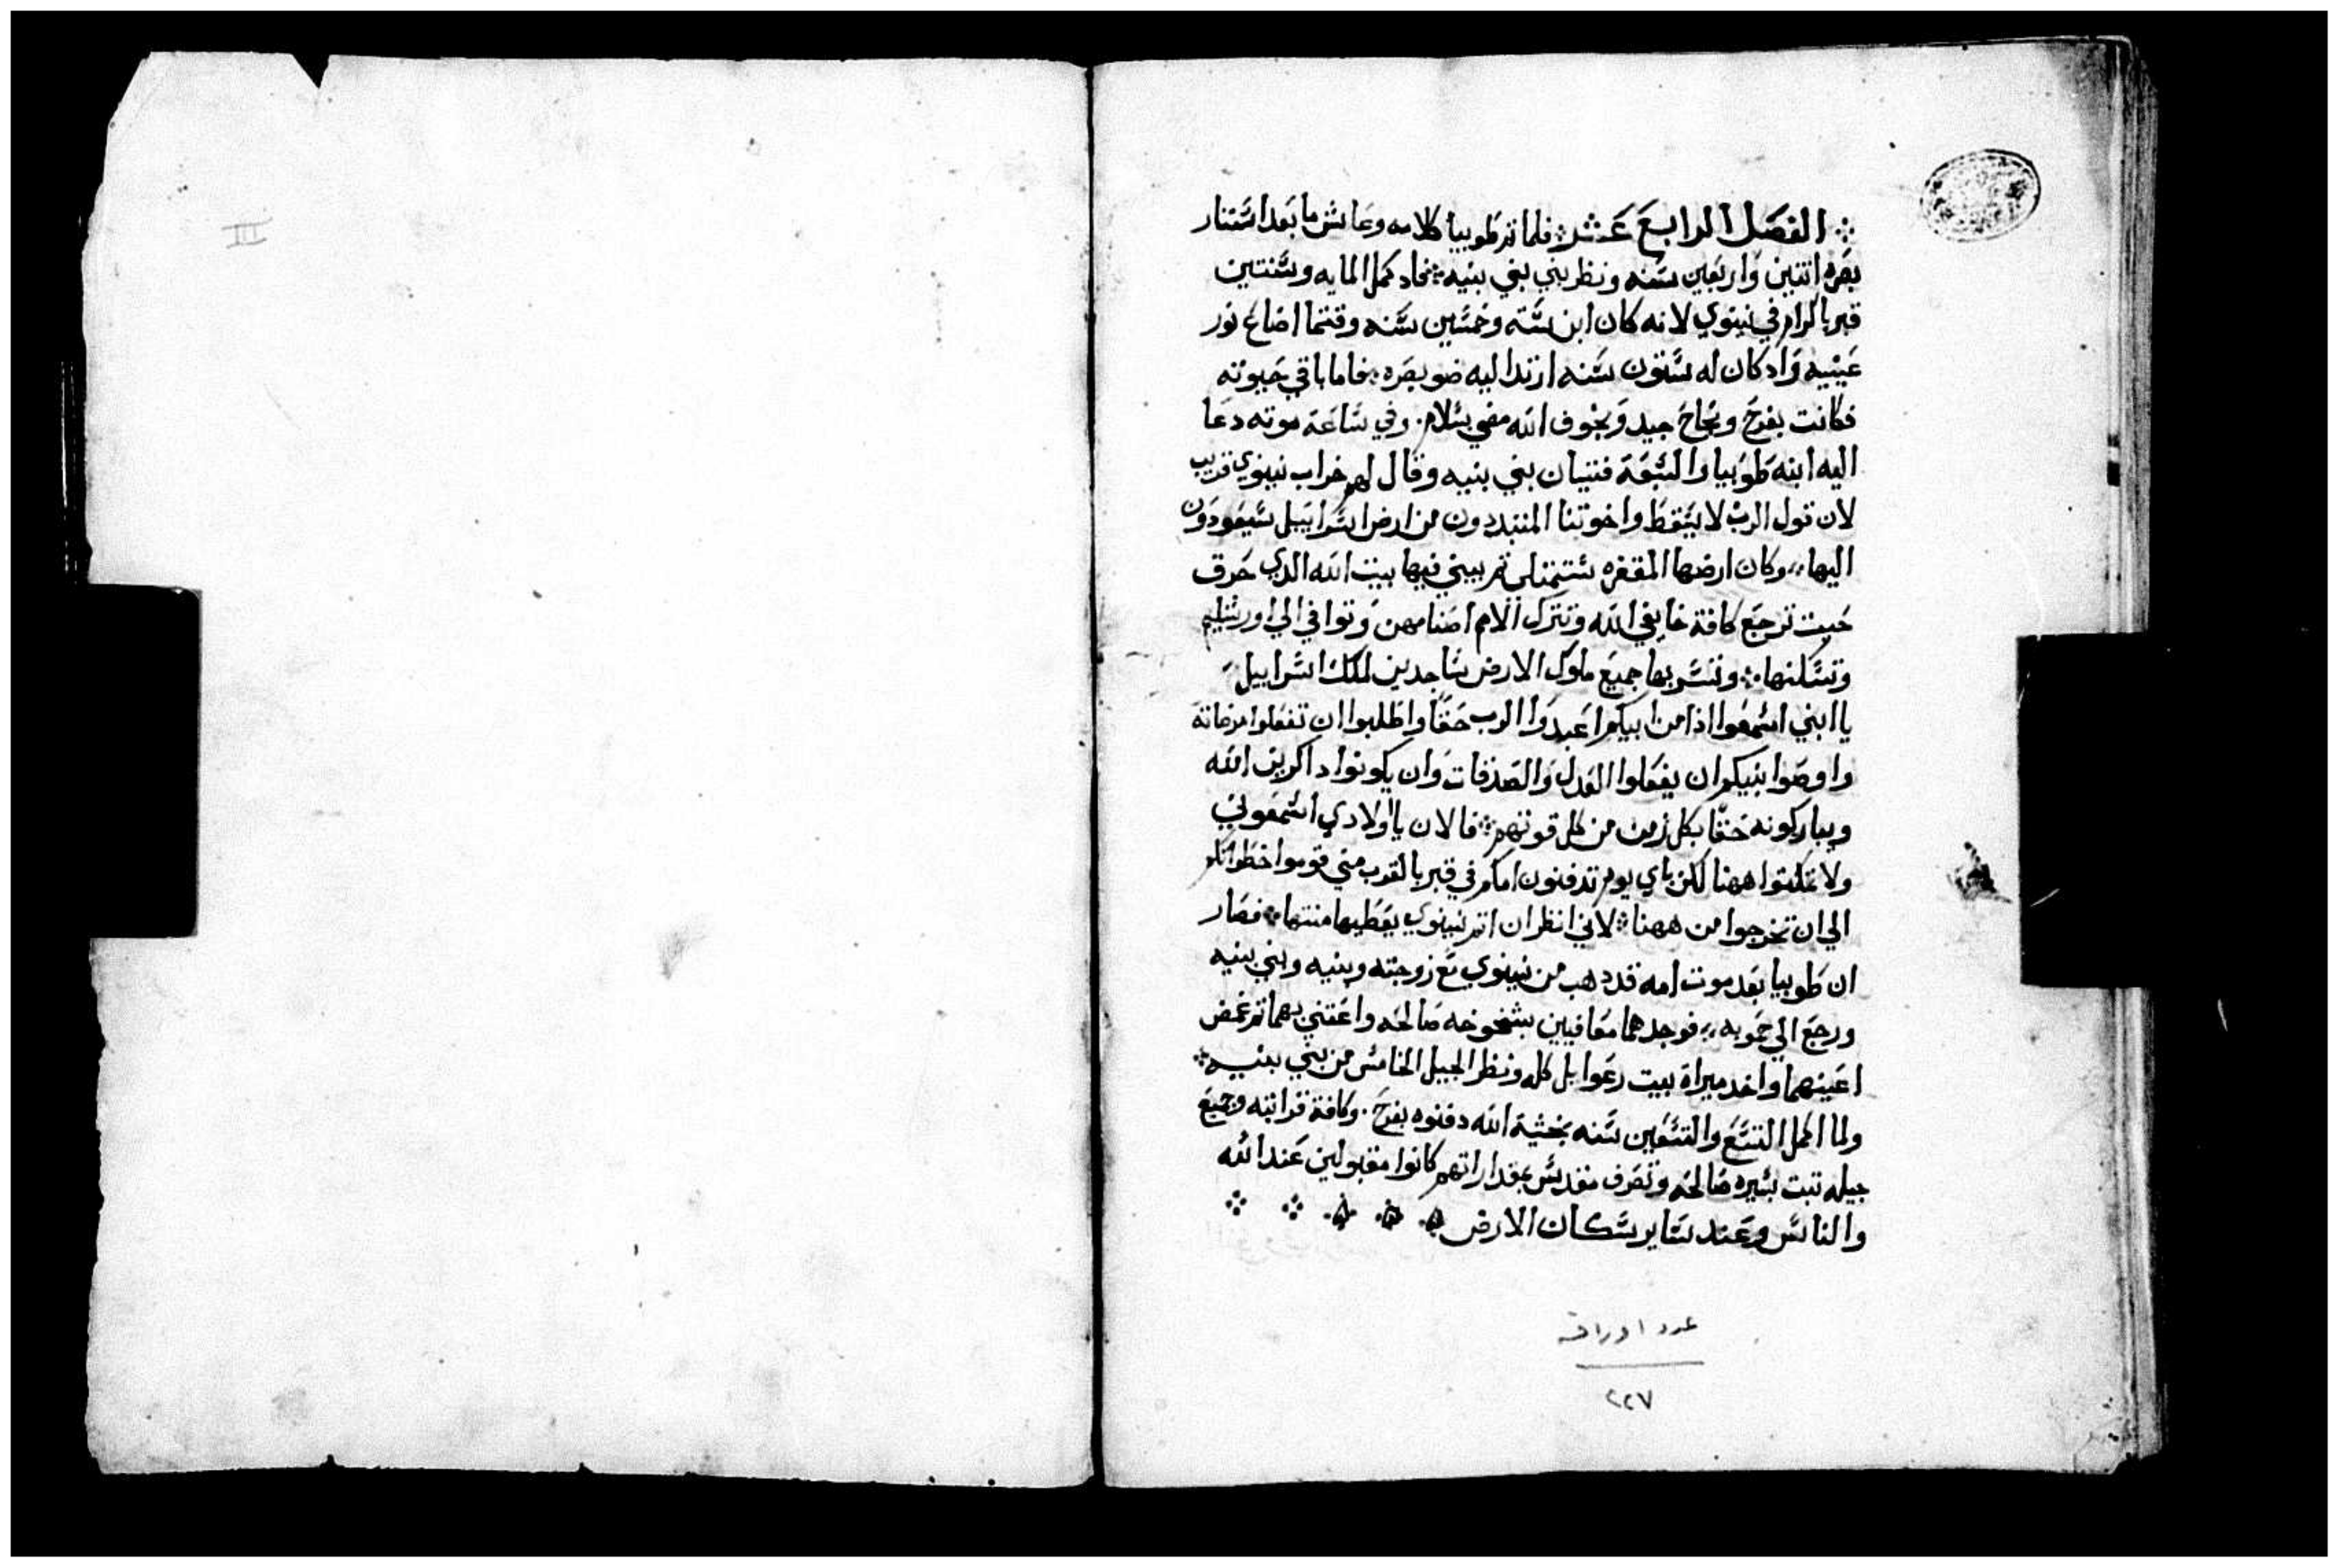 III
الفصل الرابع عشر فلما تم طوبيا كلامه وعاش ما بعد استنار
بصره اتنين واربعين سنه ونظر بني بني بنيه فاد كمل المايه وسنتين
قبر باكرام في نينوي لانه كان ابن سته وخمسين سنه وقتما اضاع نور
عينيه واد كان له ستون سنه ارتد اليه ضو بصره فاما باقي حيوته
فكانت بفرح ونجاح جيد وبخوف الله مضي بسلام. وفي ساعة موته دعا
اليه ابنه طوبيا والسبعة فتيان بني بنيه وقال لهم خراب نينوي قريب
لان قول الرب لا يسقط واخوتنا المتبددون من ارض اسراييل سيعودون
اليها،، وكان ارضها المقفره ستمتلي تم يبني فيها بيت الله الدي حرق
حيت ترجع كافة خايفي الله وتترك الامم اصنامهن وتوافي الي اورشليم
وتسكنها وتسر بها جميع ملوك الارض ساجدين لملك اسراييل
يا ابني اسمعوا اذا من ابيكم اعبدوا الرب حقا واطلبوا ان تفعلوا مرضاته
واوصوا بنيكم ان يفعلوا العدل والصدقات وان يكونوا داكرين الله
ويباركونه حقا بكل زمن من كل قوتهم فالان يا اولادي اسمعوني
ولا تمكتوا ههنا لكن باي يوم تدفنون امكم في قبر بالقرب مني قوموا خطواتكم
الي ان تخرجوا من ههنا لاني انظر ان اتم نينوي يعطيها منتها فصار
ان طوبيا بعد موت امه قد دهب من نينوي مع زوجته وبنيه وبني بنيه
ورجع الي حمويه،، فوجدهما معافيين بشيخوخه صالحه واعتني بهما تم غمض
اعينهما واخد ميراة بيت رعوايل كله ونظر الجيل الخامس من بني بنيه
ولما اكمل التسع والتسعين سنه بخشية الله دفنوه بفرح. وكافة قرابته وجميع
جيله تبت بسيره صالحه وتصرف مقدس بمقدار انهم كانوا مقبولين عند الله
والناس وعند ساير سكان الارض
عدد اوراقه
٢٢٧